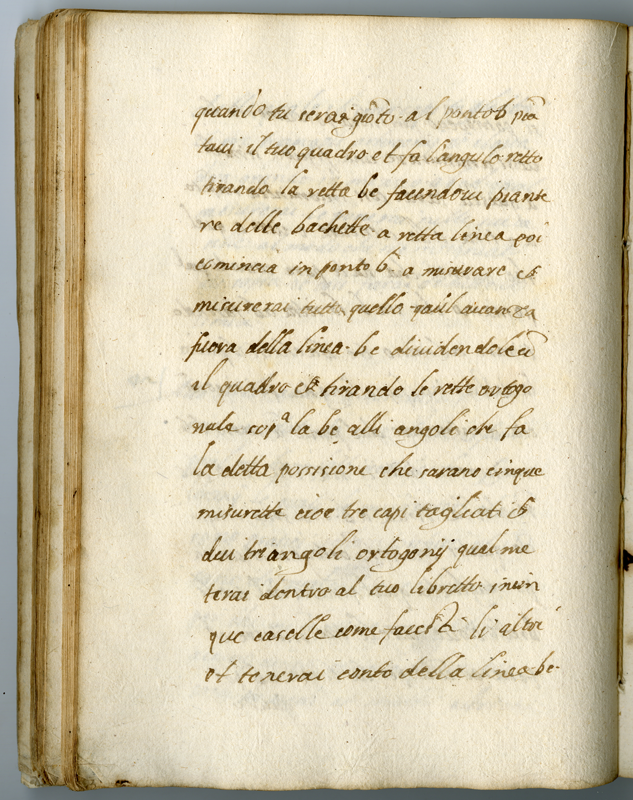 quando tu serai giōto a l ponto b piā
taui il tuo quadro et fa l'angulo retto
tirando la retta be facendoui piante
re delle bachette a retta linea poi
comincia in ponto b a misurare et
misurerai tutto quello qual auanza
fuora della linea be diuidendole cō
il quadro et tirando le rette ortogo
nale sopª la be alli angoli che fa
la detta possisione che sarano cinque
misurette cioe tre capi tagliati et
dui triangoli ortogonij qual me
terai dentro al tuo libretto in cin
que caselle come facesti li altri
et tenerai conto della linea be